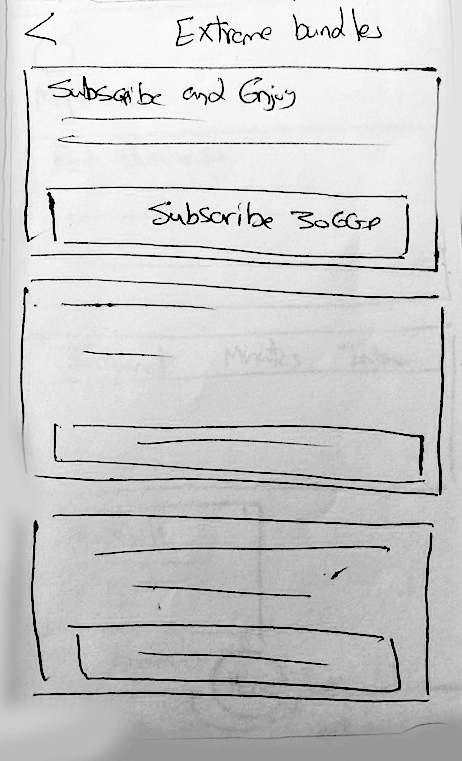 < Extreme bundles
Subscribe and Enjoy
Subscribe 30 EGP